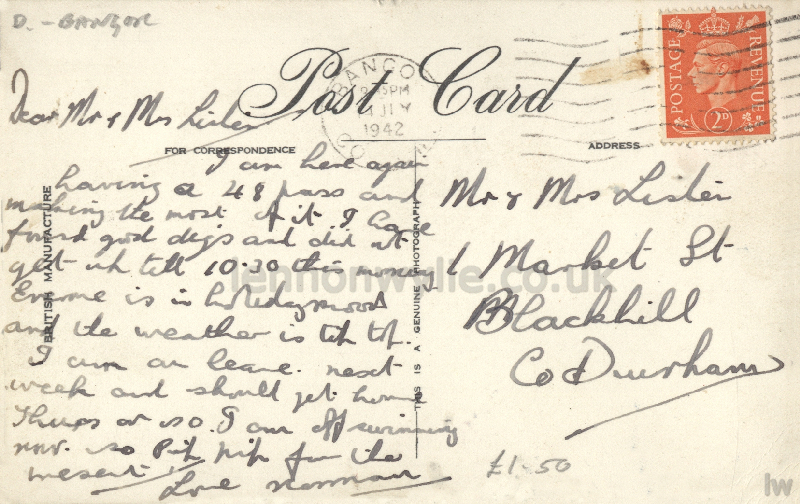 D. - BANGOR
Post Card
BANGO
PM
JLY
1942
CO
POSTAGE
REVENUE
2D
FOR CORRESPONDENCE
ADDRESS
BRITISH MANUFACTURE
THIS IS A GENUINE PHOTOGRAPH
Dear Mr & Mrs Lister
I am here again
having a 48 pass and
making the most of it I have
found good digs and did not
get up till 10.30 this morning
Everyone is in holiday mood
and the weather is tip top.
I am on leave next
week and should get home
Thurs or so. I am off swimming
now. so Pip pip for the
present
Love Norman
Mr & Mrs Lister
1 Market St
Blackhill
Co Durham
£1-50
lennonwylie.co.uk
lw